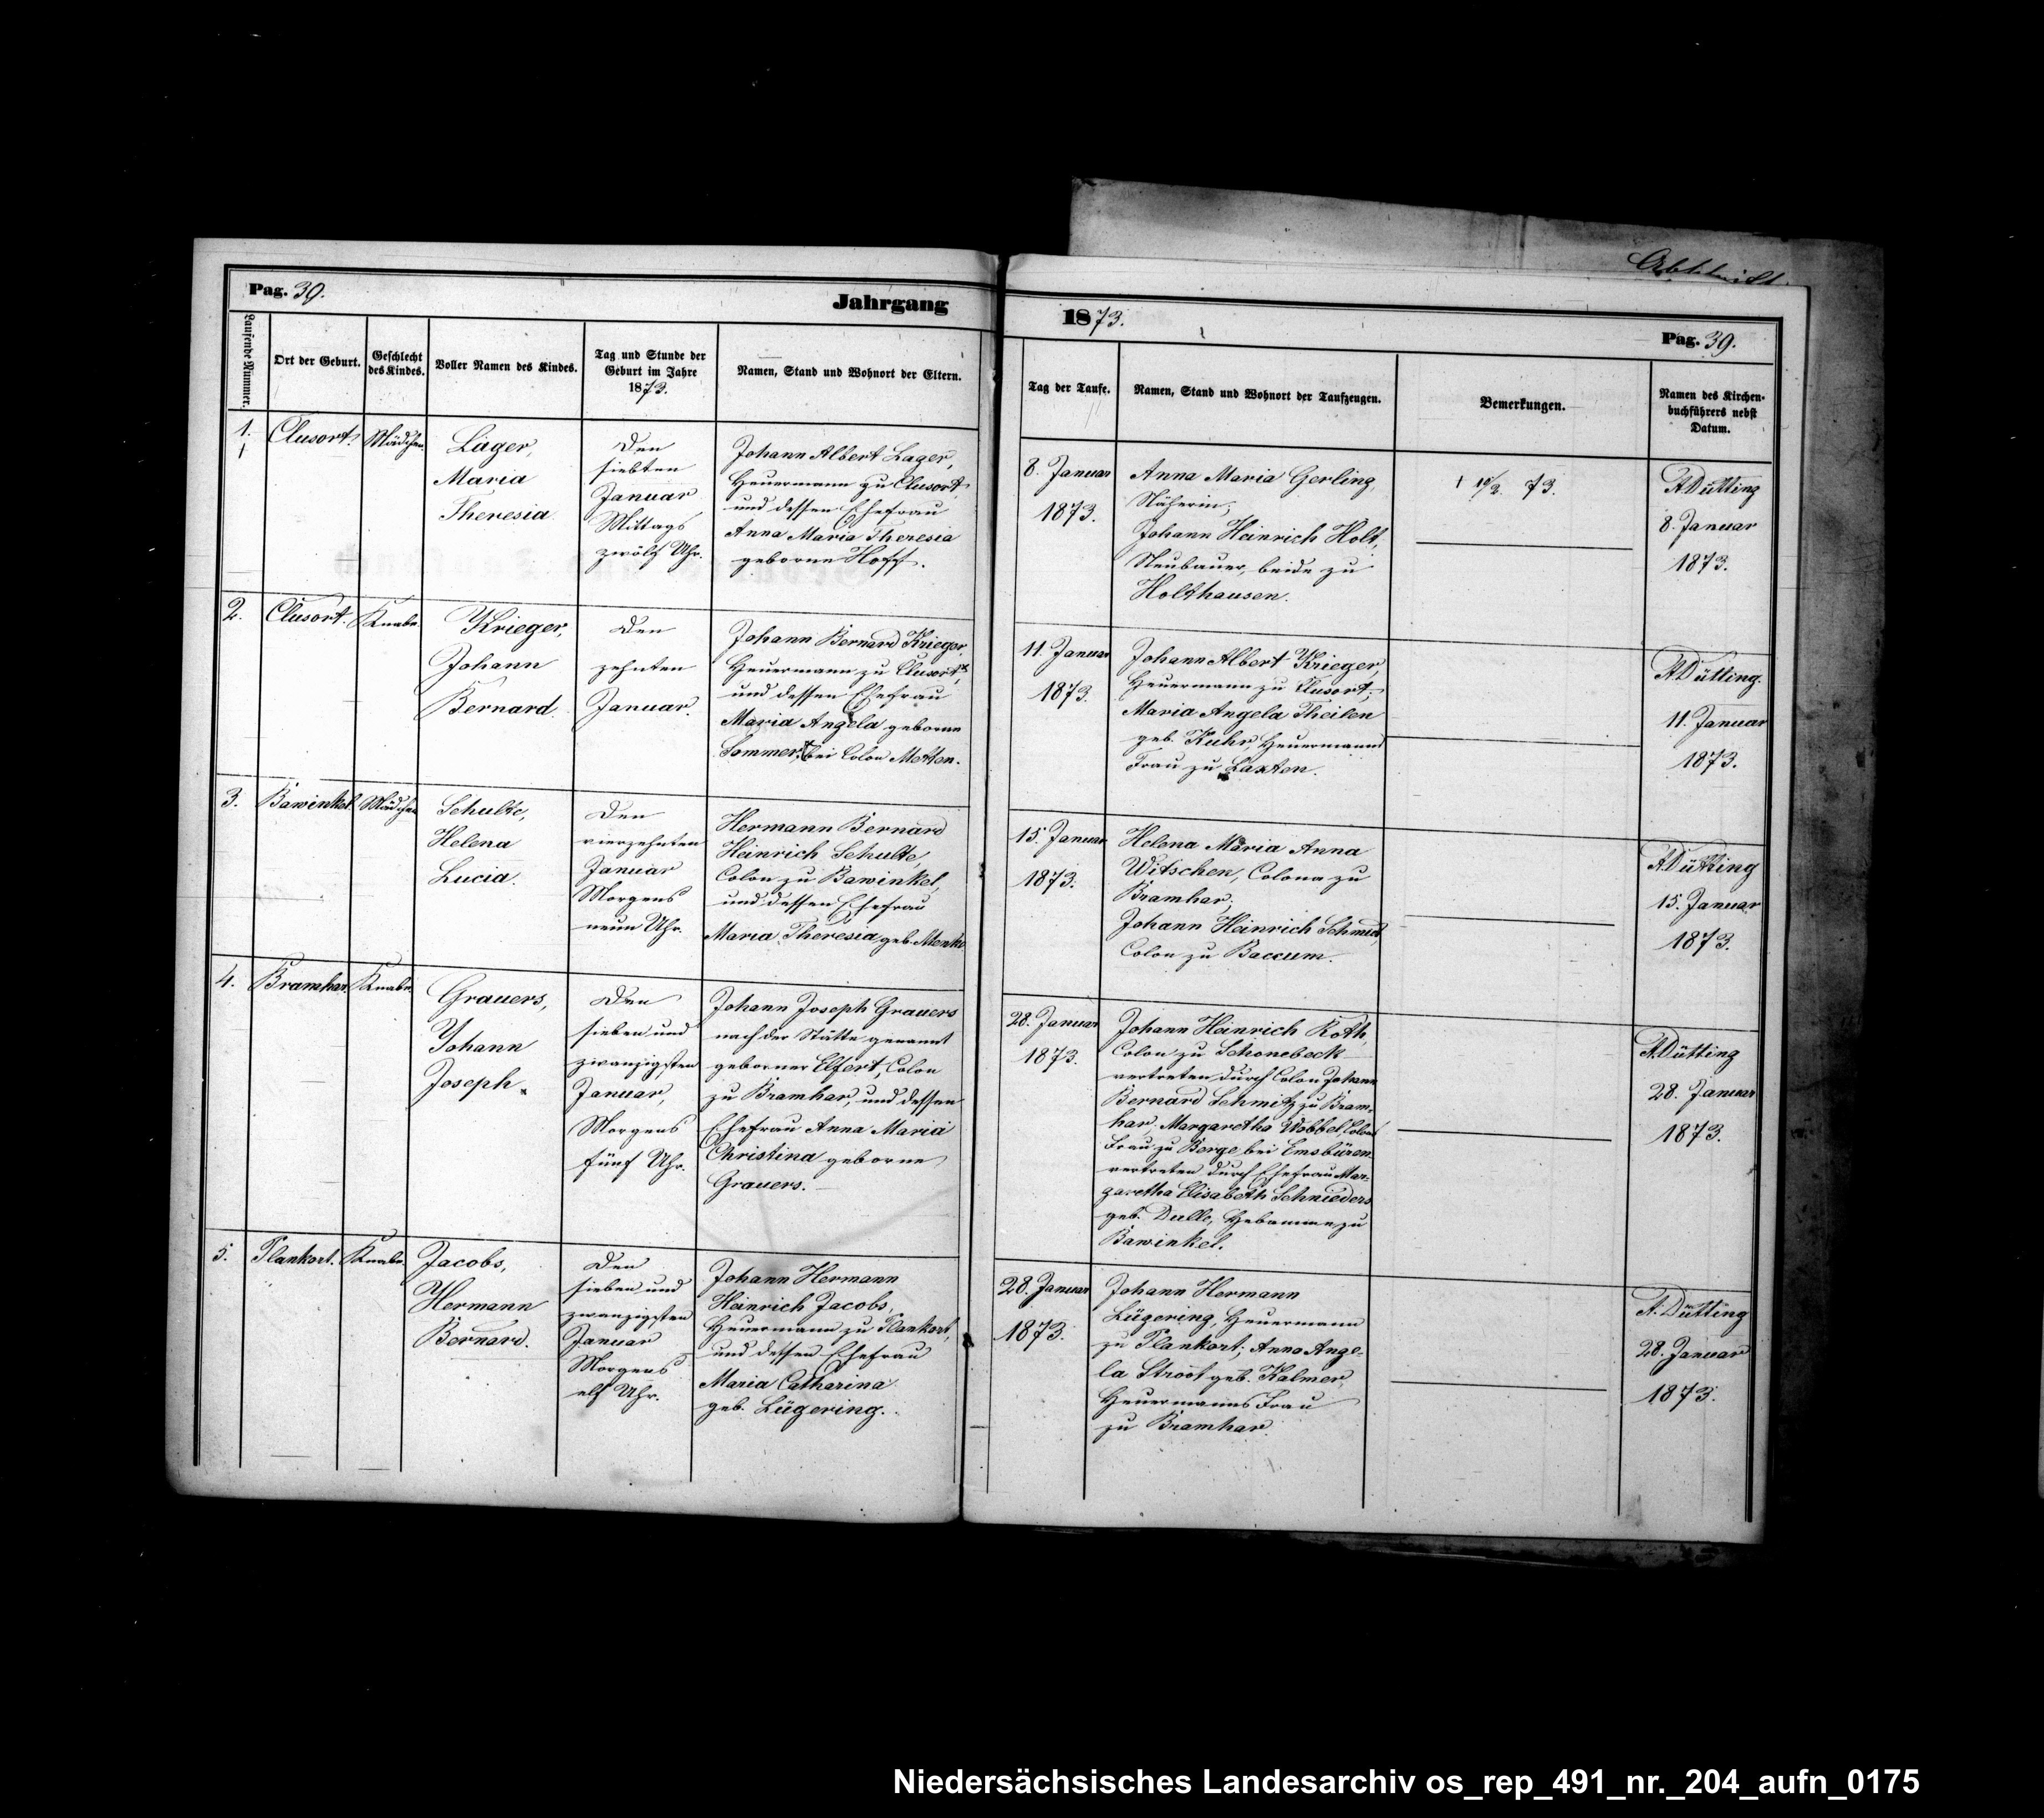 Abschrift.
Pag. 39.
Jahrgang
1873.
Pag. 39.
Laufende Nummer.
Ort der Geburt.
Geschlecht
des Kindes.
Voller Namen des Kindes.
Tag und Stunde der
Geburt im Jahre
1873.
Namen, Stand und Wohnort der Eltern.
Tag der Taufe.
Namen, Stand und Wohnort der Taufzeugen.
Bemerkungen.
Namen des Kirchen-
buchführers nebst
Datum.
1.
Clusort.
Mädchen.
Läger,
Maria
Theresia.
Den
siebten
Januar
Mittags
zwölf Uhr.
Johann Albert Lager,
Heuermann zu Clusort,
und dessen Ehefrau
Anna Maria Theresia
geborne Hoff.
8. Januar
1873.
Anna Maria Gerling,
Näherin;
Johann Heinrich Holt,
Neubauer, beide zu
Holthausen.
73.
A Dütting
8. Januar
1873.
2.
Clusort.
Knabe.
Krieger,
Johann
Bernard.
Den
zehnten
Januar.
Johann Bernard Krieger,
Heuermann zu Clusort,
und dessen Ehefrau
Maria Angela geborne
Sommer, bei Colon Metten.
11. Januar
1873.
Johann Albert Krieger,
Heuermann zu Clusort;
Maria Angela Theilen
geb. Kuhr, Heuermanns
Frau zu Laxten.
A Dütting.
11. Januar
1873.
3.
Bawinkel.
Mädchen
Schulte,
Helena
Lucia.
Den
vierzehnten
Januar
Morgens
neun Uhr.
Hermann Bernard
Heinrich Schulte,
Colon zu Bawinkel,
und dessen Ehefrau
Maria Theresia geb. Menke
15. Januar
1873.
Helena Maria Anna
Witschen, Colona zu
Bramhar;
Johann Heinrich Schmidt,
Colon zu Baccum.
A Dütting
15. Januar
1873.
4.
Bramhar.
Knabe.
Grauers,
Johann
Joseph.
Den
sieben und
zwanzigsten
Januar,
Morgens
fünf Uhr.
Johann Joseph Grauers
nach der Stätte genannt
geborner Elfert, Colon
zu Bramhar, und dessen
Ehefrau Anna Maria
Christina geborne
Grauers.
28. Januar
1873.
Johann Heinrich Roth,
Colon zu Schonebeck
vertreten durch Colon Johann
Bernard Schmitz zu Bram-
har; Margaretha Wobbel, Colons
Frau zu Berge bei Emsbüren
vertreten durch Ehefrau Mar-
garetha Elisabeth Schnieders
geb. Dulle, Hebamme zu
Bawinkel.
A. Dütting
28. Januar
1873.
5.
Plankort.
Knabe.
Jacobs,
Hermann
Bernard.
Den
sieben und
zwanzigsten
Januar
Morgens
elf Uhr.
Johann Hermann
Heinrich Jacobs,
Heuermann zu Plankort,
und dessen Ehefrau
Maria Catharina
geb. Lügering.
28. Januar
1873.
Johann Hermann
Lügering, Heuermann
zu Plankort; Anna Ange-
la Stroot geb. Kalmer,
Heuermanns Frau
zu Bramhar.
A. Dütting
28. Januar
1873.
Niedersächsisches Landesarchiv os_rep_491_nr._204_aufn_0175